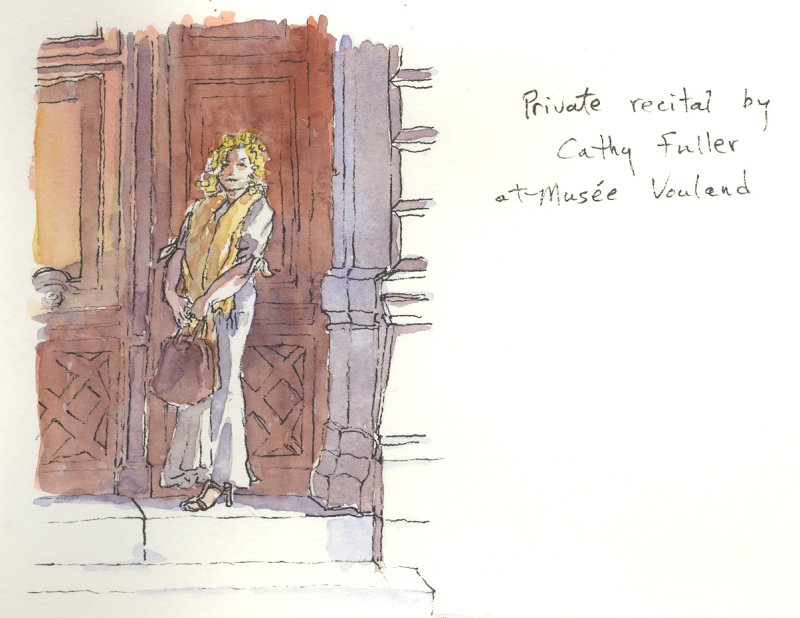 Private recital by
Cathy Fuller
at Musée Vouland